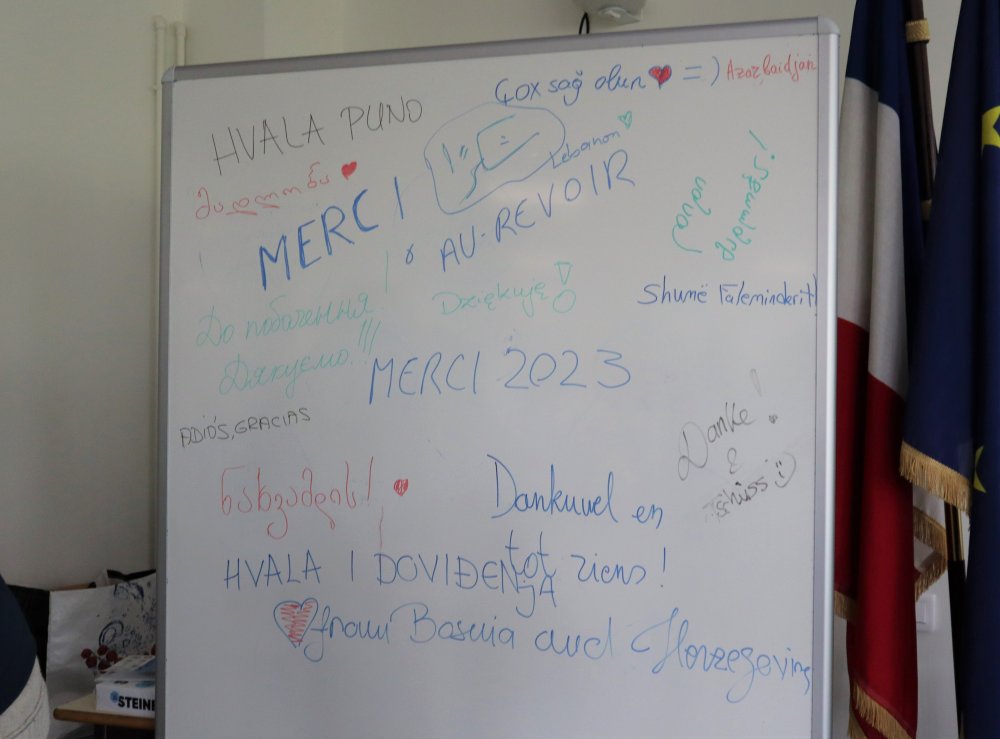 Çox sağ olun ❤ = ) Azərbaidjan
HVALA PUNO
მადლობა ❤
MERCI !
Lebanon ♡
& AU-REVOIR
До побачення !
Дякуємо !!!
Dziękuję !
Shumë Faleminderit!
MERCI 2023
ADIÓS, GRACIAS
Danke !
&
ნახვამდის! ❤
Dankuwel en
tot ziens !
HVALA I DOVIĐENJA
from Bosnia and Herzegovina
STEINE